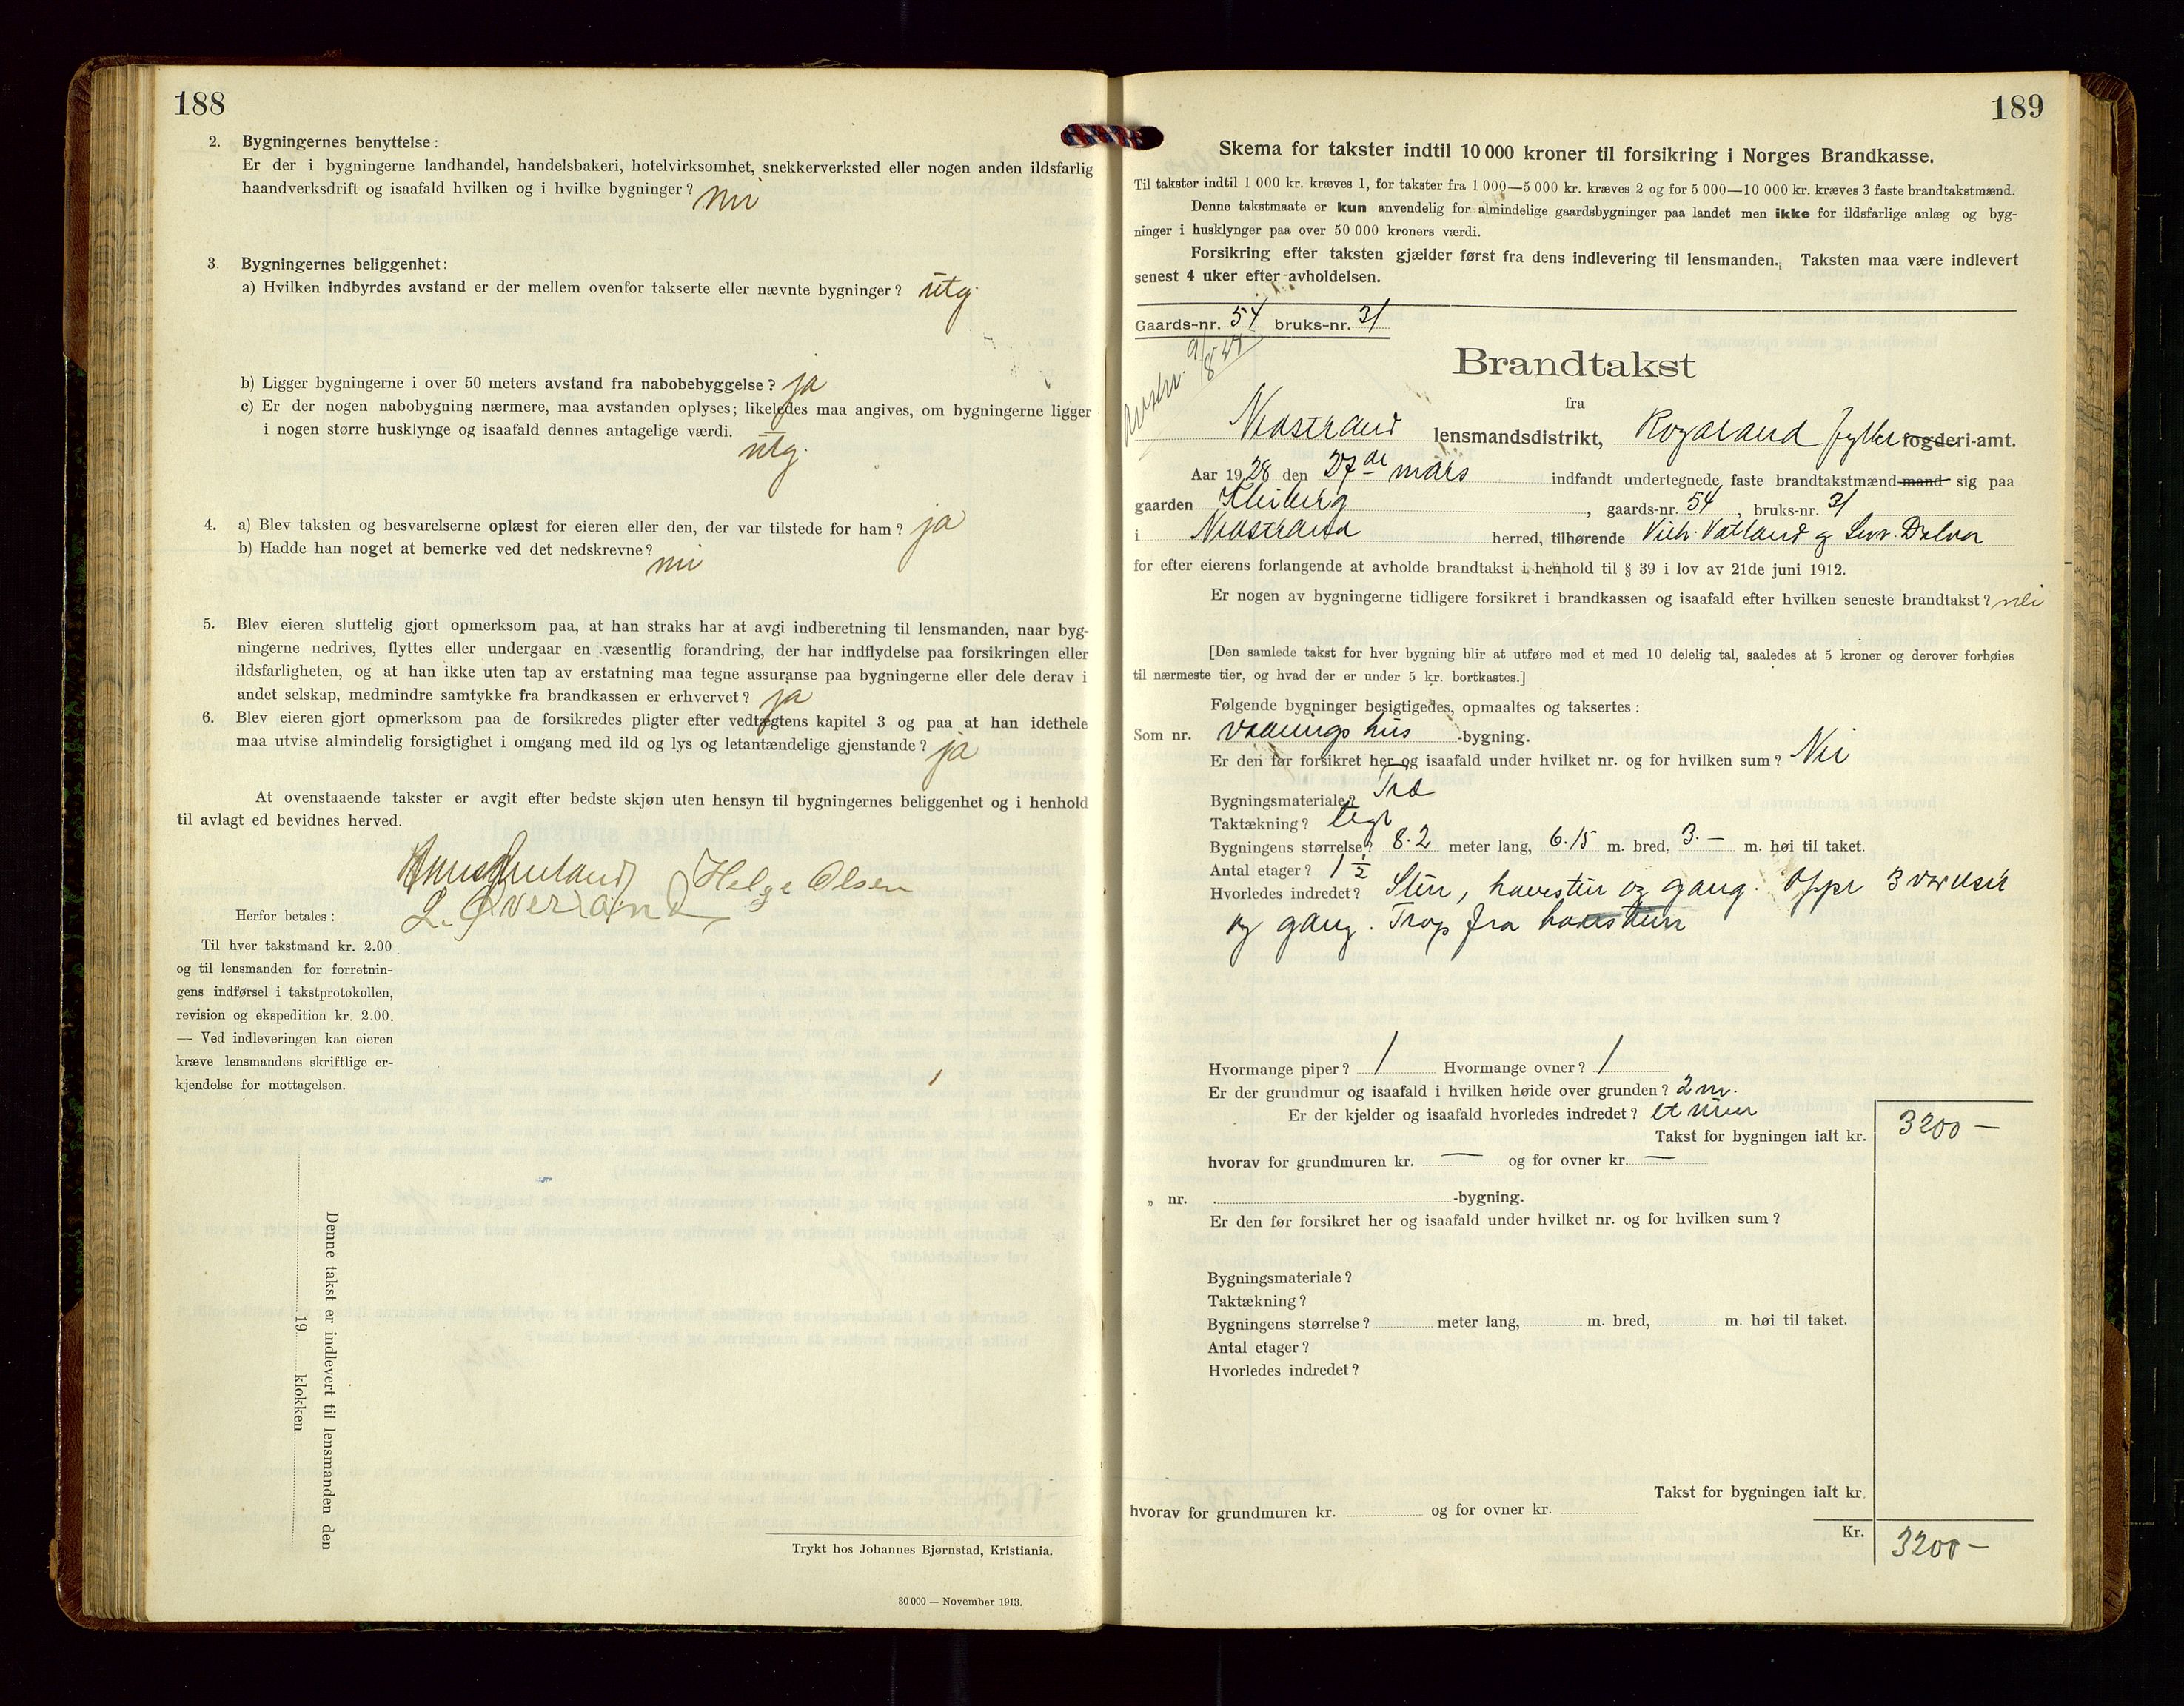 188
2. Bygningernes benyttelse:
Er der i bygningerne landhandel, handelsbakeri, hotelvirksomhet, snekkerverksted eller nogen anden ildsfarlig
haandverksdrift og isaafald hvilken og i hvilke bygninger? nei
3. Bygningernes beliggenhet:
a) Hvilken indbyrdes avstand er der mellem ovenfor takserte eller nævnte bygninger? utg.
b) Ligger bygningerne i over 50 meters avstand fra nabobebyggelse? ja
c) Er der nogen nabobygning nærmere, maa avstanden oplyses; likeledes maa angives, om bygningerne ligger
i nogen større husklynge og isaafald dennes antagelige værdi.
utg.
4. a) Blev taksten og besvarelserne oplæst for eieren eller den, der var tilstede for ham? ja
b) Hadde han noget at bemerke ved det nedskrevne?
nei
5. Blev eieren sluttelig gjort opmerksom paa, at han straks har at avgi indberetning til lensmanden, naar byg-
ningerne nedrives, flyttes eller undergaar en væsentlig forandring, der har indflydelse paa forsikringen eller
ildsfarligheten, og at han ikke uten tap av erstatning maa tegne assuranse paa bygningerne eller dele derav i
andet selskap, medmindre samtykke fra brandkassen er erhvervet? ja
6. Blev eieren gjort opmerksom paa de forsikredes pligter efter vedtægtens kapitel 3 og paa at han idethele
maa utvise almindelig forsigtighet i omgang med ild og lys og letantændelige gjenstande? ja
At ovenstaaende takster er avgit efter bedste skjøn uten hensyn til bygningernes beliggenhet og i henhold
til avlagt ed bevidnes herved.
Helge Olsen
L. Øverland
Herfor betales:
Til hver takstmand kr. 2.00
og til lensmanden for forretnin-
gens indførsel i takstprotokollen,
revision og ekspedition kr. 2.00.
— Ved indleveringen kan eieren
kræve lensmandens skriftlige er-
kjendelse for mottagelsen.
Denne takst er indlevert til lensmanden den
19 klokken
Trykt hos Johannes Bjørnstad, Kristiania.
30 000 — November 1913.
189
Skema for takster indtil 10 000 kroner til forsikring i Norges Brandkasse.
Til takster indtil 1 000 kr. kræves 1, for takster fra 1 000—5 000 kr. kræves 2 og for 5 000—10 000 kr. kræves 3 faste brandtakstmænd.
Denne takstmaate er kun anvendelig for almindelige gaardsbygninger paa landet men ikke for ildsfarlige anlæg og byg-
ninger i husklynger paa over 50 000 kroners værdi.
Forsikring efter taksten gjælder først fra dens indlevering til lensmanden. Taksten maa være indlevert
senest 4 uker efter avholdelsen.
Gaards-nr. 54 bruks-nr. 31
Brandtakst
fra
Nedstrand lensmandsdistrikt, Rogaland fylke fogderi-amt.
Aar 1928 den 27de mars indfandt undertegnede faste brandtakstmænd mand sig paa
gaarden Kleiberg, gaards-nr. 54, bruks-nr. 31
i Nedstrand herred, tilhørende Vilh. Vatland og
for efter eierens forlangende at avholde brandtakst i henhold til § 39 i lov av 21de juni 1912.
Er nogen av bygningerne tidligere forsikret i brandkassen og isaafald efter hvilken seneste brandtakst? nei
[Den samlede takst for hver bygning blir at utføre med et med 10 delelig tal, saaledes at 5 kroner og derover forhøies
til nærmeste tier, og hvad der er under 5 kr. bortkastes.]
Følgende bygninger besigtigedes, opmaaltes og taksertes:
Som nr. vaanings hus -bygning.
Er den før forsikret her og isaafald under hvilket nr. og for hvilken sum? Nei
Bygningsmateriale? Træ
Taktækning? tegl
Bygningens størrelse? 8.2 meter lang, 6.15 m. bred, 3.— m. høi til taket.
Antal etager? 1 ½
Hvorledes indredet? Stue, havestue og gang. Oppe 3 værelser
og gang. Trap fra havestuen
Hvormange piper? 1 Hvormange ovner? 1
Er der grundmur og isaafald i hvilken høide over grunden? 2 m.
Er der kjelder og isaafald hvorledes indredet? et rum
Takst for bygningen ialt kr. 3200 —
hvorav for grundmuren kr. — og for ovner kr. —
„ nr. -bygning.
Er den før forsikret her og isaafald under hvilket nr. og for hvilken sum?
Bygningsmateriale?
Taktækning?
Bygningens størrelse? meter lang, m. bred, m. høi til taket.
Antal etager?
Hvorledes indredet?
Takst for bygningen ialt kr.
hvorav for grundmuren kr. og for ovner kr.
Kr. 3200 —